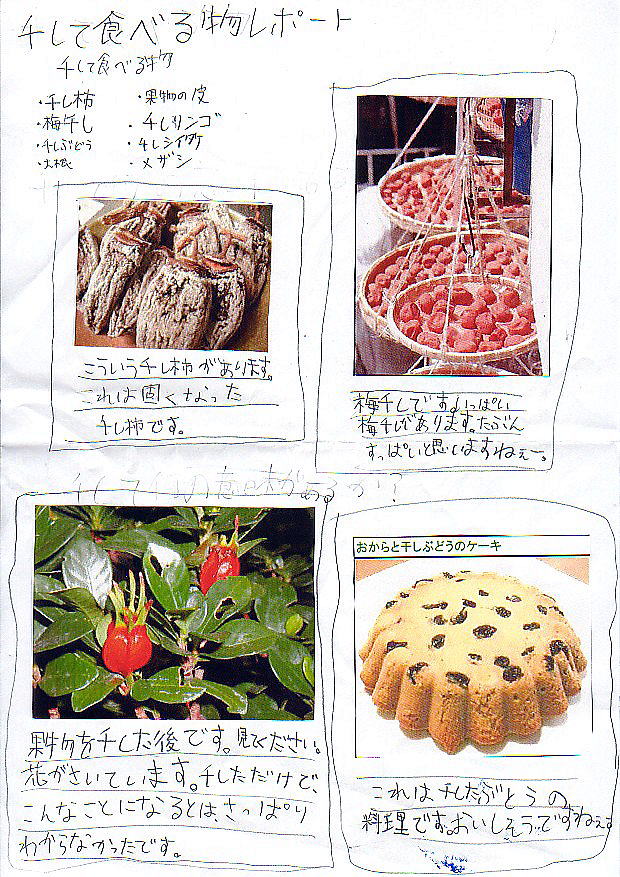 干して食べる物レポート
干して食べる物
・干し柿
・梅干し
・干しぶどう
・大根
・果物の皮
・干しリンゴ
・干しシイタケ
・メザシ
こういう干し柿があります。
これは固くなった
干し柿です。
梅干しです。いっぱい
梅干しがあります。たぶん
すっぱいと思いますねぇー。
果物を干した後です。見てください。
花がさいています。干しただけで、
こんなことになるとは、さっぱり
わからなかったです。
おからと干しぶどうのケーキ
これは干したぶどうの
料理です。おいしそうですねぇ